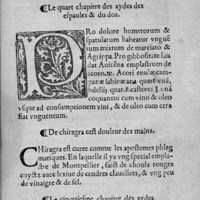 Le quart chapitre des aydes des
espaules & du dos.
PRo dolore humerorum &
spatularum habeatur vnguẽ
tum mixtum de marciato &
Agrippa. Pro gibbositate lau
dat Auicẽna emplastrum de
acoro.
ad consumptionem vini, & de oleo cum cera
fiat vnguentum.
De chiragra cest douleur des mains.
CHiragra est curee comme les apostemes phleg
matiques. En laquelle il ya vng special empla-
stre de Montpellier, faict de choulx rouges
cuyctz auec lexiue de cendres clauellees, & vng peu
de vinaigre & de sel.
Le cinquiesme chapitre des aydes